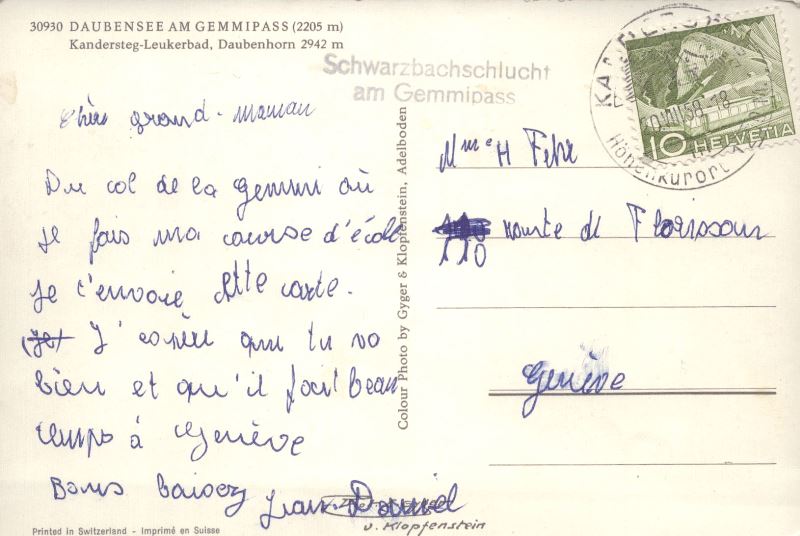 30930 DAUBENSEE AM GEMMIPASS (2205 m)
Kandersteg-Leukerbad, Daubenhorn 2942 m
Schwarzbachschlucht
am Gemmipass
10 HELVETIA
Höhenkurort
Chère grand-maman
Du col de la Gemmi où
je fais ma course d'école
je t'envoie cette carte.
(je) J'espère que tu va
bien et qu'il fait beau
temps à Genève
Bons baisers Jean-Daniel
Mme H
110 route de Florissant
Genève
Colour Photo by Gyger & Klopfenstein, Adelboden
v. Klopfenstein
Printed in Switzerland - Imprimé en Suisse